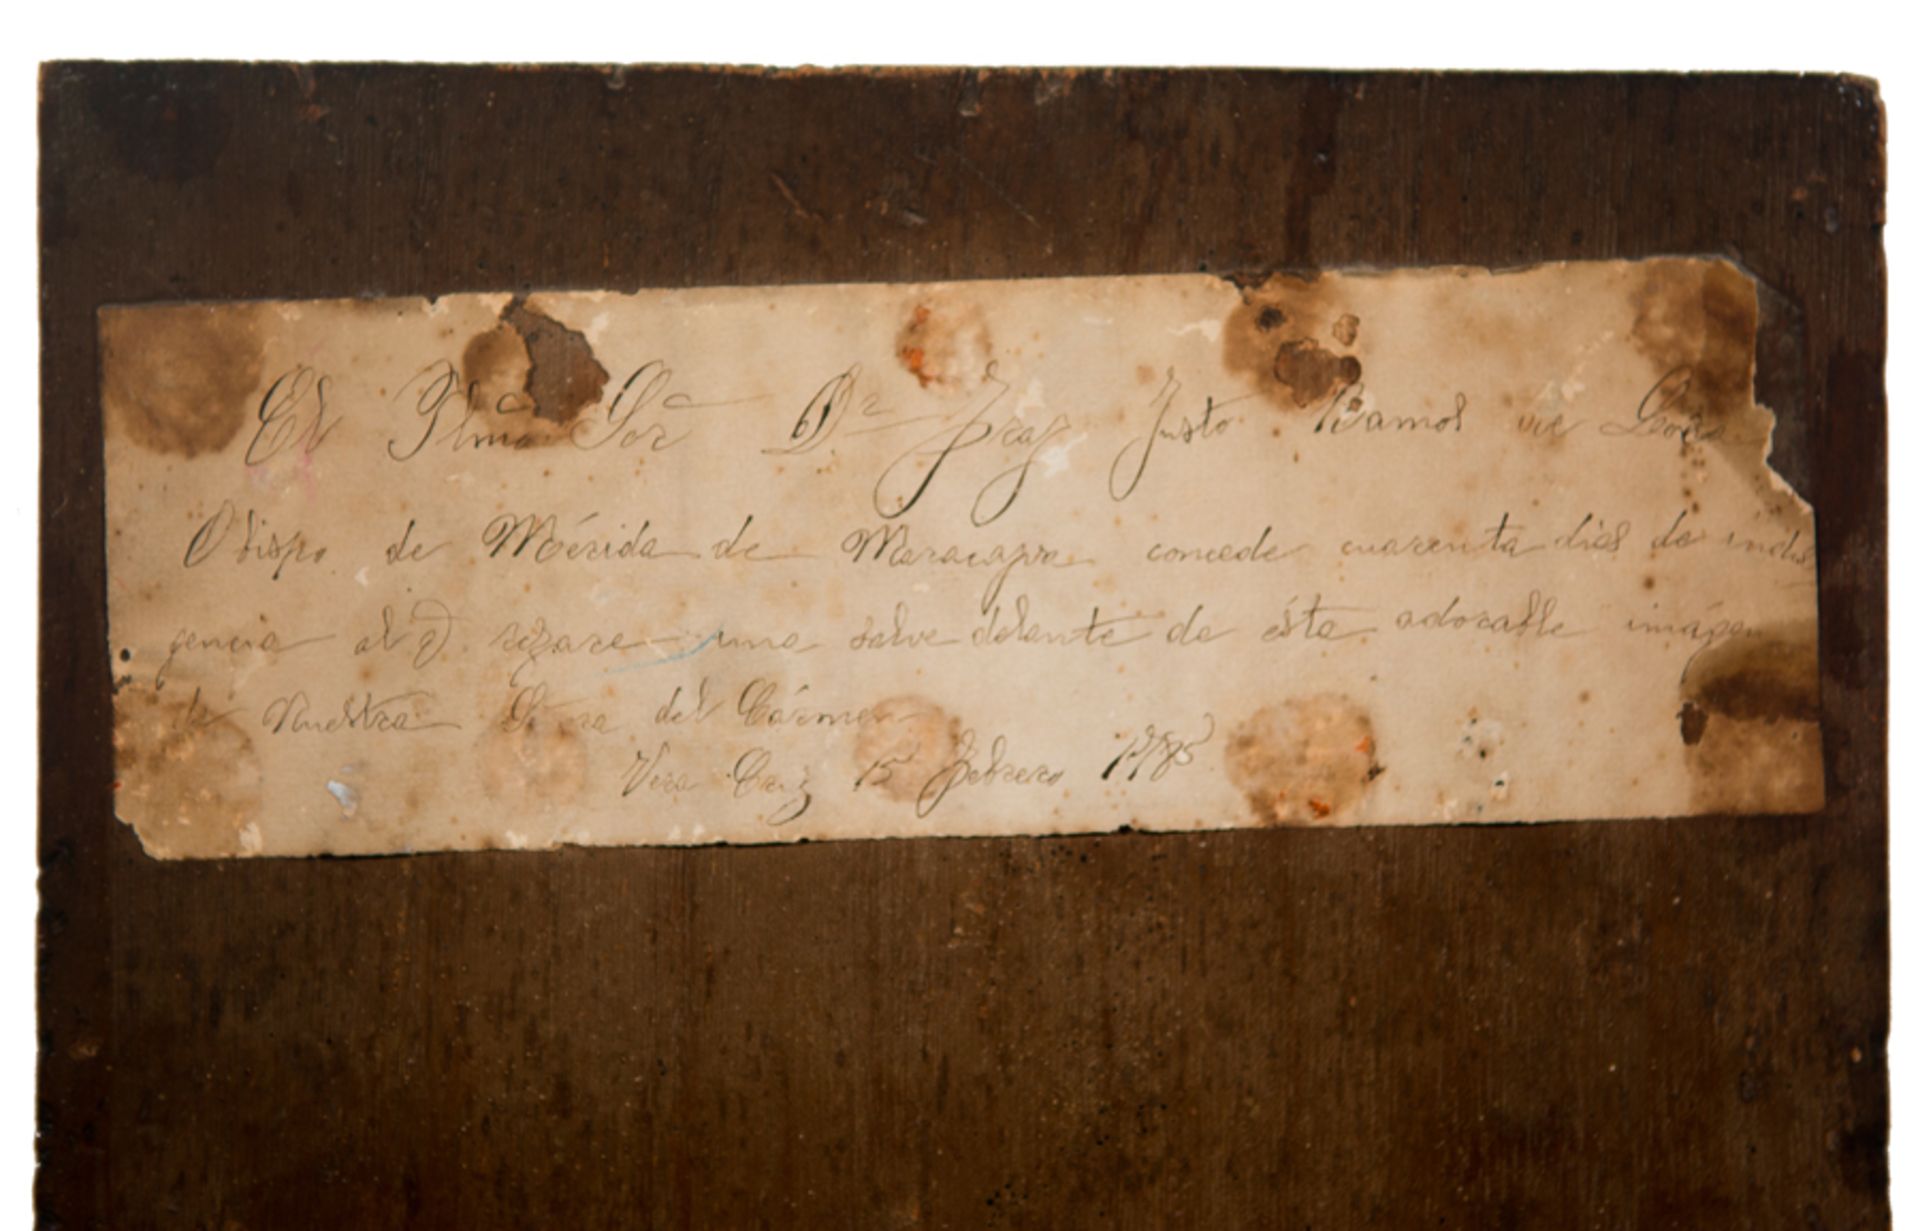 El Ilmo Sor Dr Fray Justo Ramos de Lora
Obispo de Mérida de Maracaya concede cuarenta dias de indul
gencia al q. rezare una salve delante de ésta adorable imágen
de Nuestra Sra del Cármen
Vera Cruz 15 Febrero 1785